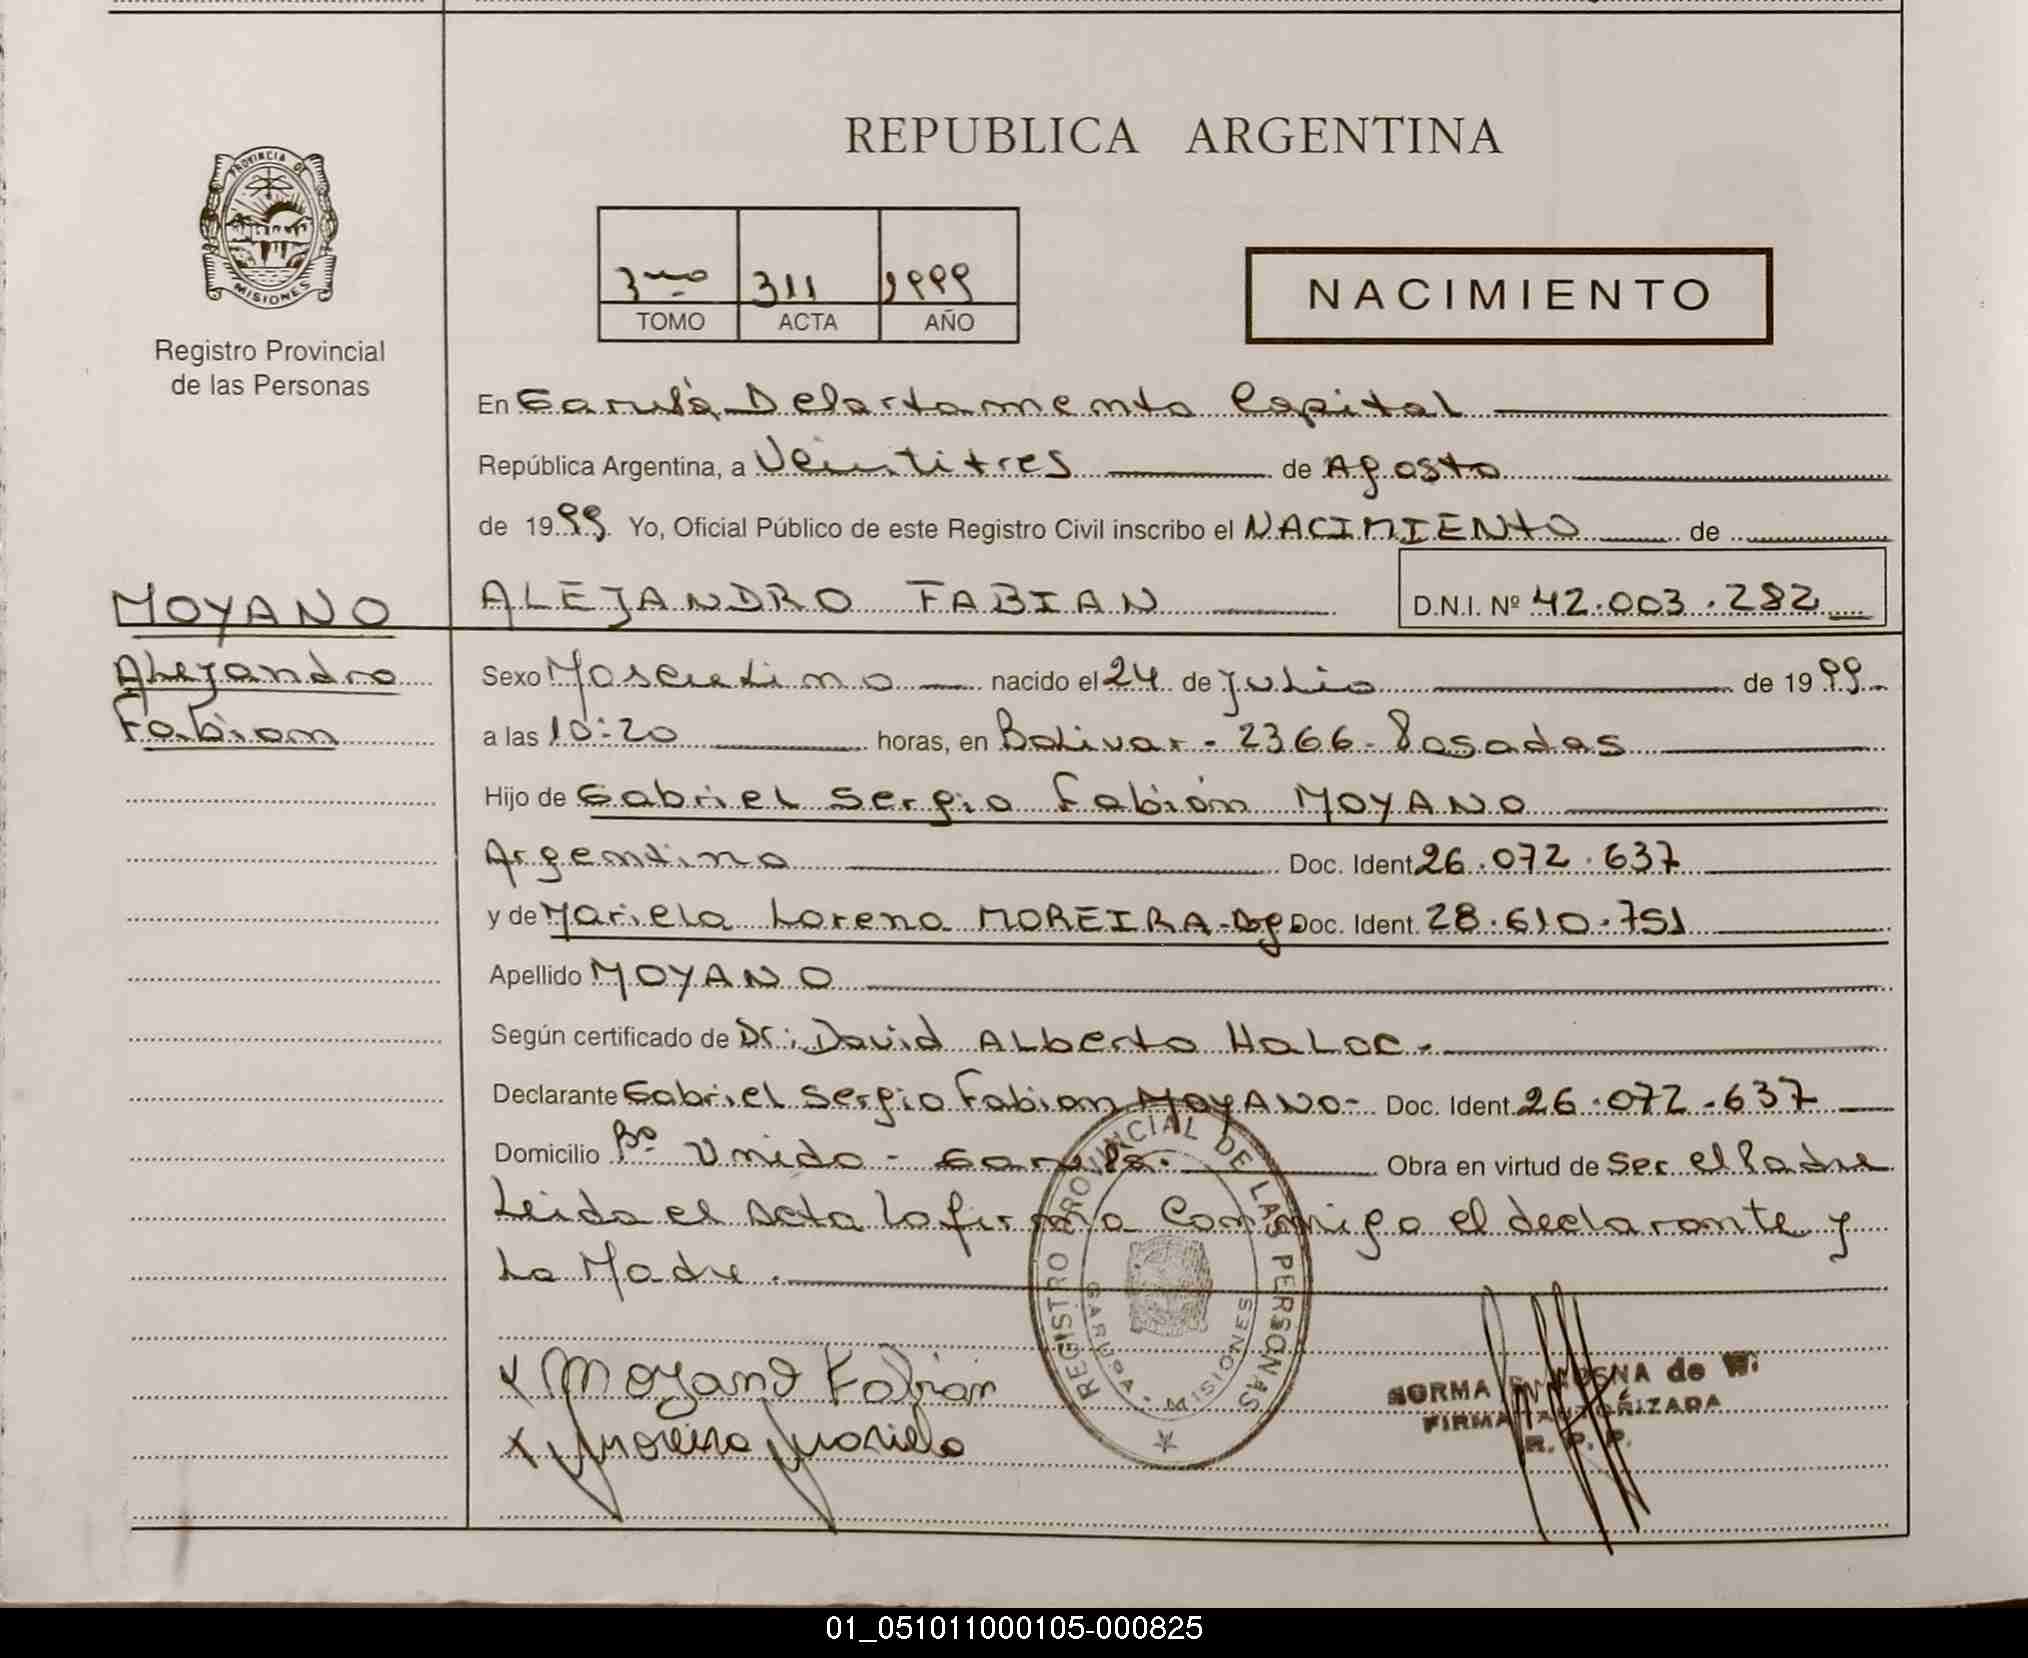 REPUBLICA ARGENTINA
PROVINCIA DE
MISIONES
Registro Provincial
de las Personas
3ero 311 1999
TOMO ACTA AÑO
NACIMIENTO
En Garupá Departamento Capital
República Argentina, a Veintitres de Agosto
de 1999 Yo, Oficial Público de este Registro Civil inscribo el NACIMIENTO de
ALEJANDRO FABIAN D.N.I. Nº 42.003.282
MOYANO
Alejandro
Fabian
Sexo Masculino nacido el 24 de Julio de 1999
a las 10:20 horas, en Bolivar - 2366 - Posadas
Hijo de Gabriel Sergio Fabián MOYANO
Argentino Doc. Ident. 26.072.637
y de Mariela Lorena MOREIRA - Arg Doc. Ident. 28.610.751
Apellido MOYANO
Según certificado de Dr: David Alberto
Declarante Gabriel Sergio Fabian MOYANO - Doc. Ident. 26.072.637
Domicilio Bº Unido - Garupá. Obra en virtud de ser el Padre
Leida el Acta la firma Conmigo el declarante y
La Madre.
REGISTRO PROVINCIAL DE LAS PERSONAS
GARUPA - MISIONES
x Moyano Fabián
x Moreira Mariela
NORMA de
FIRMA AUTORIZADA
R. P. P.
01_051011000105-000825